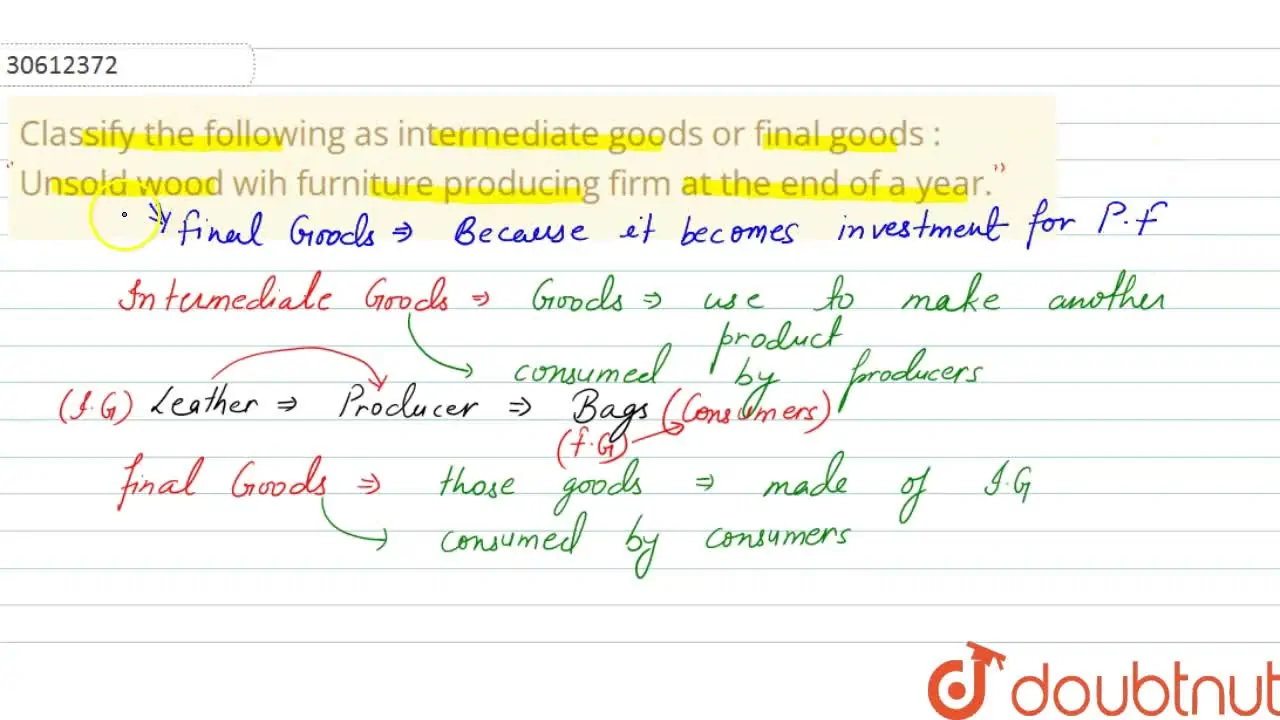 30612372
Classify the following as intermediate goods or final goods :
"Unsold wood wih furniture producing firm at the end of a year."
final Goods ⇒ Because it becomes investment for P.f
Intermediate Goods ⇒ Goods ⇒ use to make another
product
consumed by producers
(I.G) Leather ⇒ Producer ⇒ Bags (Consumers)
(f.G)
final Goods ⇒ those goods ⇒ made of I.G
consumed by consumers
doubtnut